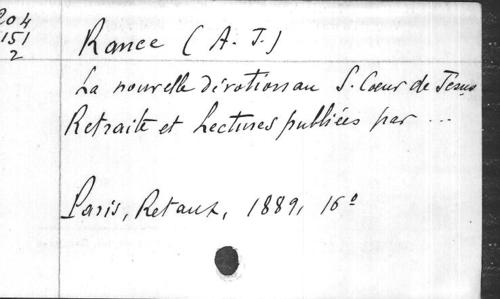 204
151
2
Rance (A. J.)
La nouvelle dévotion au S. Coeur de Jésus
Retraite et Lectures publiées par ...
Paris, Retaux, 1889, 16°